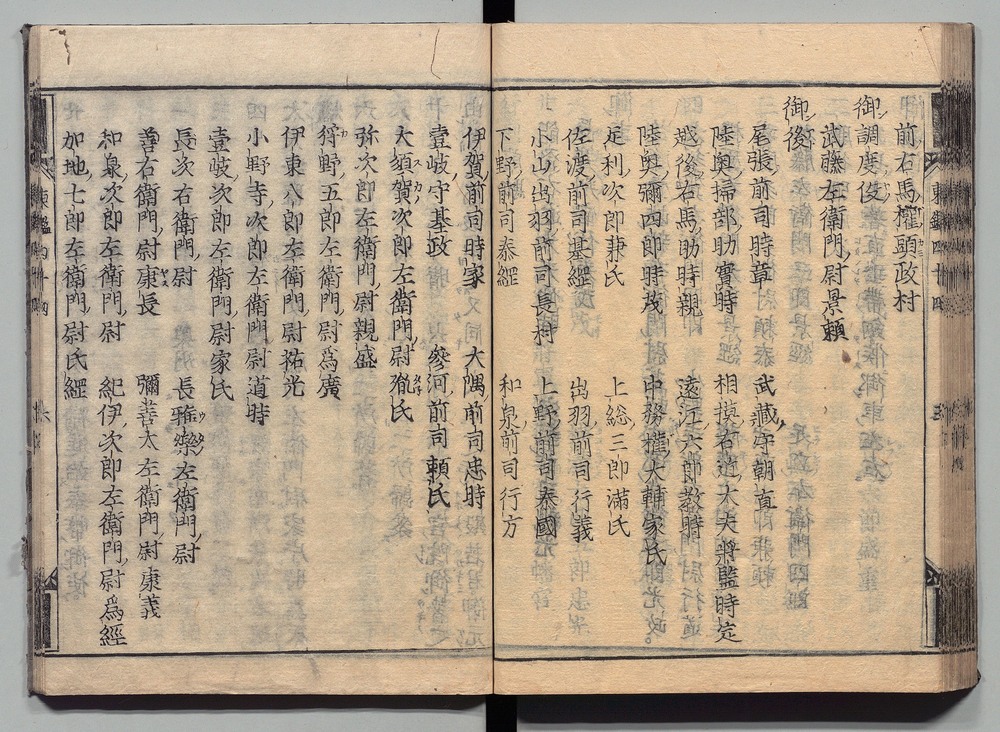 前右馬權頭政村
御調度役
武藤左衛門尉景頼
御後
尾張前司時章　武藏守朝直
陸奥掃部助實時　相摸右近大夫將監時定
越後右馬助時親　遠江六郎教時
陸奥彌四郎時茂　中務權大輔家氏
足利次郎兼氏　上総三郎満氏
佐渡前司基經　出羽前司行義
小山出羽前司長村　上野前司泰國
下野前司泰經　和泉前司行方
伊賀前司時家　大隅前司忠時
壹岐守基政　參河前司頼氏
大須賀次郎左衛門尉胤氏
弥次郎左衛門尉親盛
狩野五郎左衛門尉爲廣
伊東八郎左衛門尉祐光
小野寺次郎左衛門尉道時
壹岐次郎左衛門尉家氏
長次右衛門尉　長雅樂左衛門尉
善右衛門尉康長　彌善太左衛門尉康義
和泉次郎左衛門尉　紀伊次郎左衛門尉爲經
加地七郎左衛門尉氏經